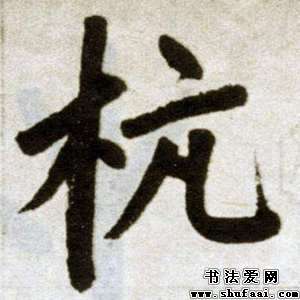 杭
书法爱网
www.shufaai.com